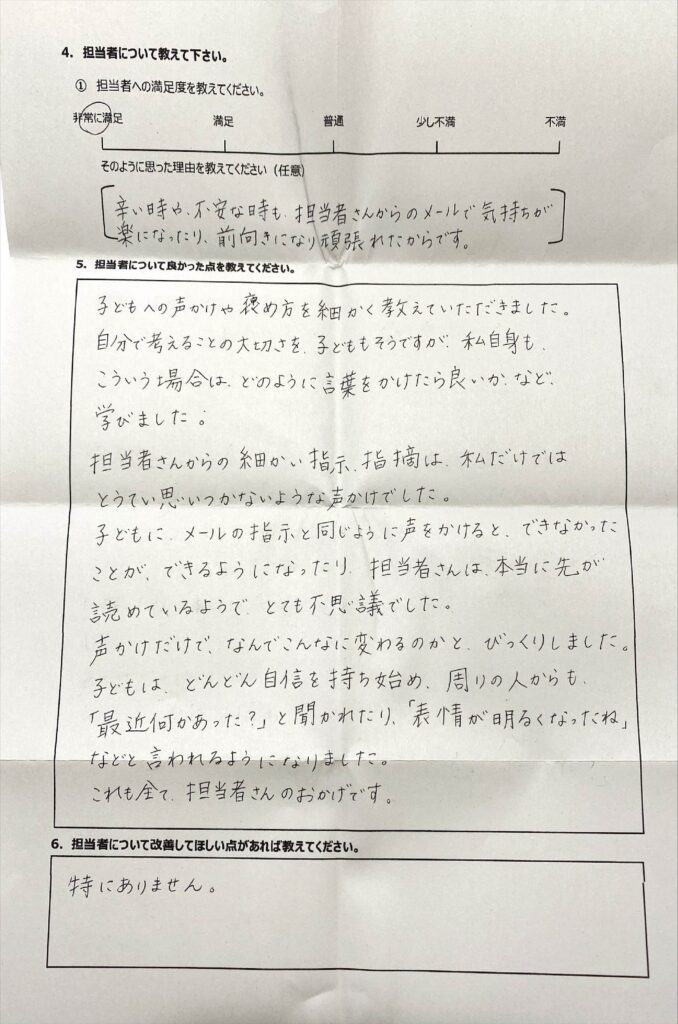 4. 担当者について教えて下さい。
① 担当者への満足度を教えてください。
非常に満足 満足 普通 少し不満 不満
そのように思った理由を教えてください（任意）
辛い時や、不安な時も、担当者さんからのメールで気持ちが
楽になったり、前向きになり頑張れたからです。
5. 担当者について良かった点を教えてください。
子どもへの声かけや褒め方を細かく教えていただきました。
自分で考えることの大切さを、子どももそうですが、私自身も、
こういう場合は、どのように言葉をかけたら良いか、など、
学びました。
担当者さんからの細かい指示、指摘は、私だけでは
とうてい思いつかないような声かけでした。
子どもに、メールの指示と同じように声をかけると、できなかった
ことが、できるようになったり、担当者さんは、本当に先が
読めているようで、とても不思議でした。
声かけだけで、なんでこんなに変わるのかと、びっくりしました。
子どもは、どんどん自信を持ち始め、周りの人からも、
「最近何かあった?」と聞かれたり、「表情が明るくなったね」
などと言われるようになりました。
これも全て、担当者さんのおかげです。
6. 担当者について改善してほしい点があれば教えてください。
特にありません。